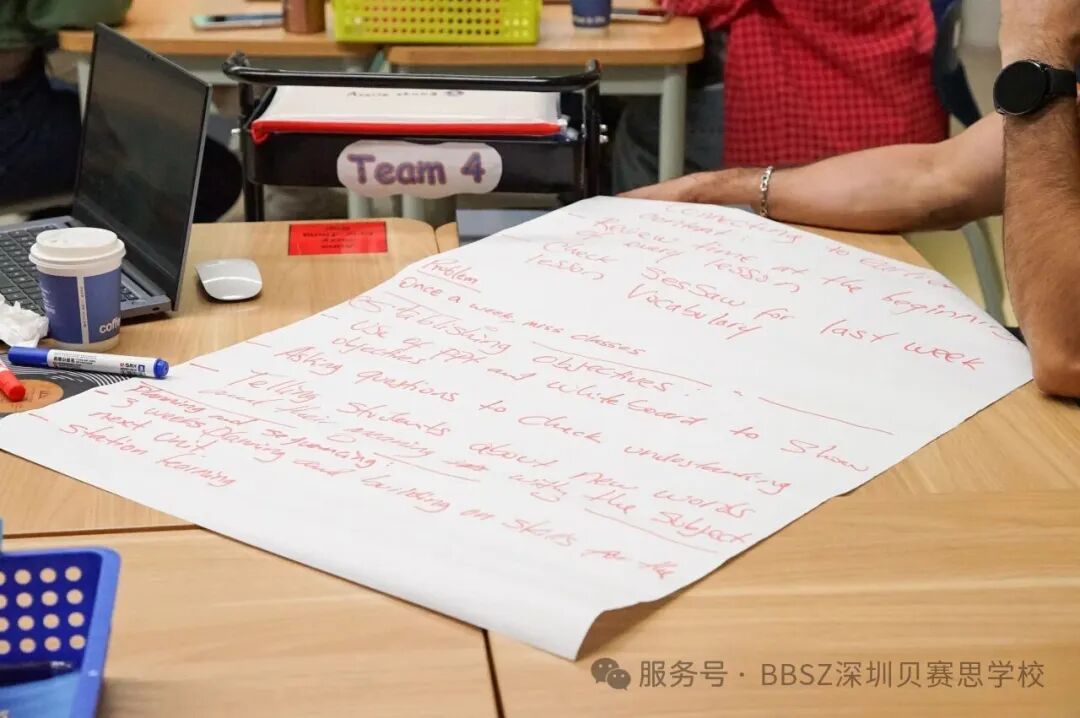 Team 4
connecting to earlier
content:
Review time at the beginning
of every lesson
Check SesSaw for last week
lesson Vocabulary
Problem
once a week, miss classes
Establishing Objectives:
- Use of PPT and whiteboard to Show
objectives
- Asking questions to check understanding
- Telling students about new words
and their meaning with the subject
- Planning and sequencing:
3 weeks planning and building on skills for the
next unit
- Station learning
coffee
服务号 · BBSZ深圳贝赛思学校